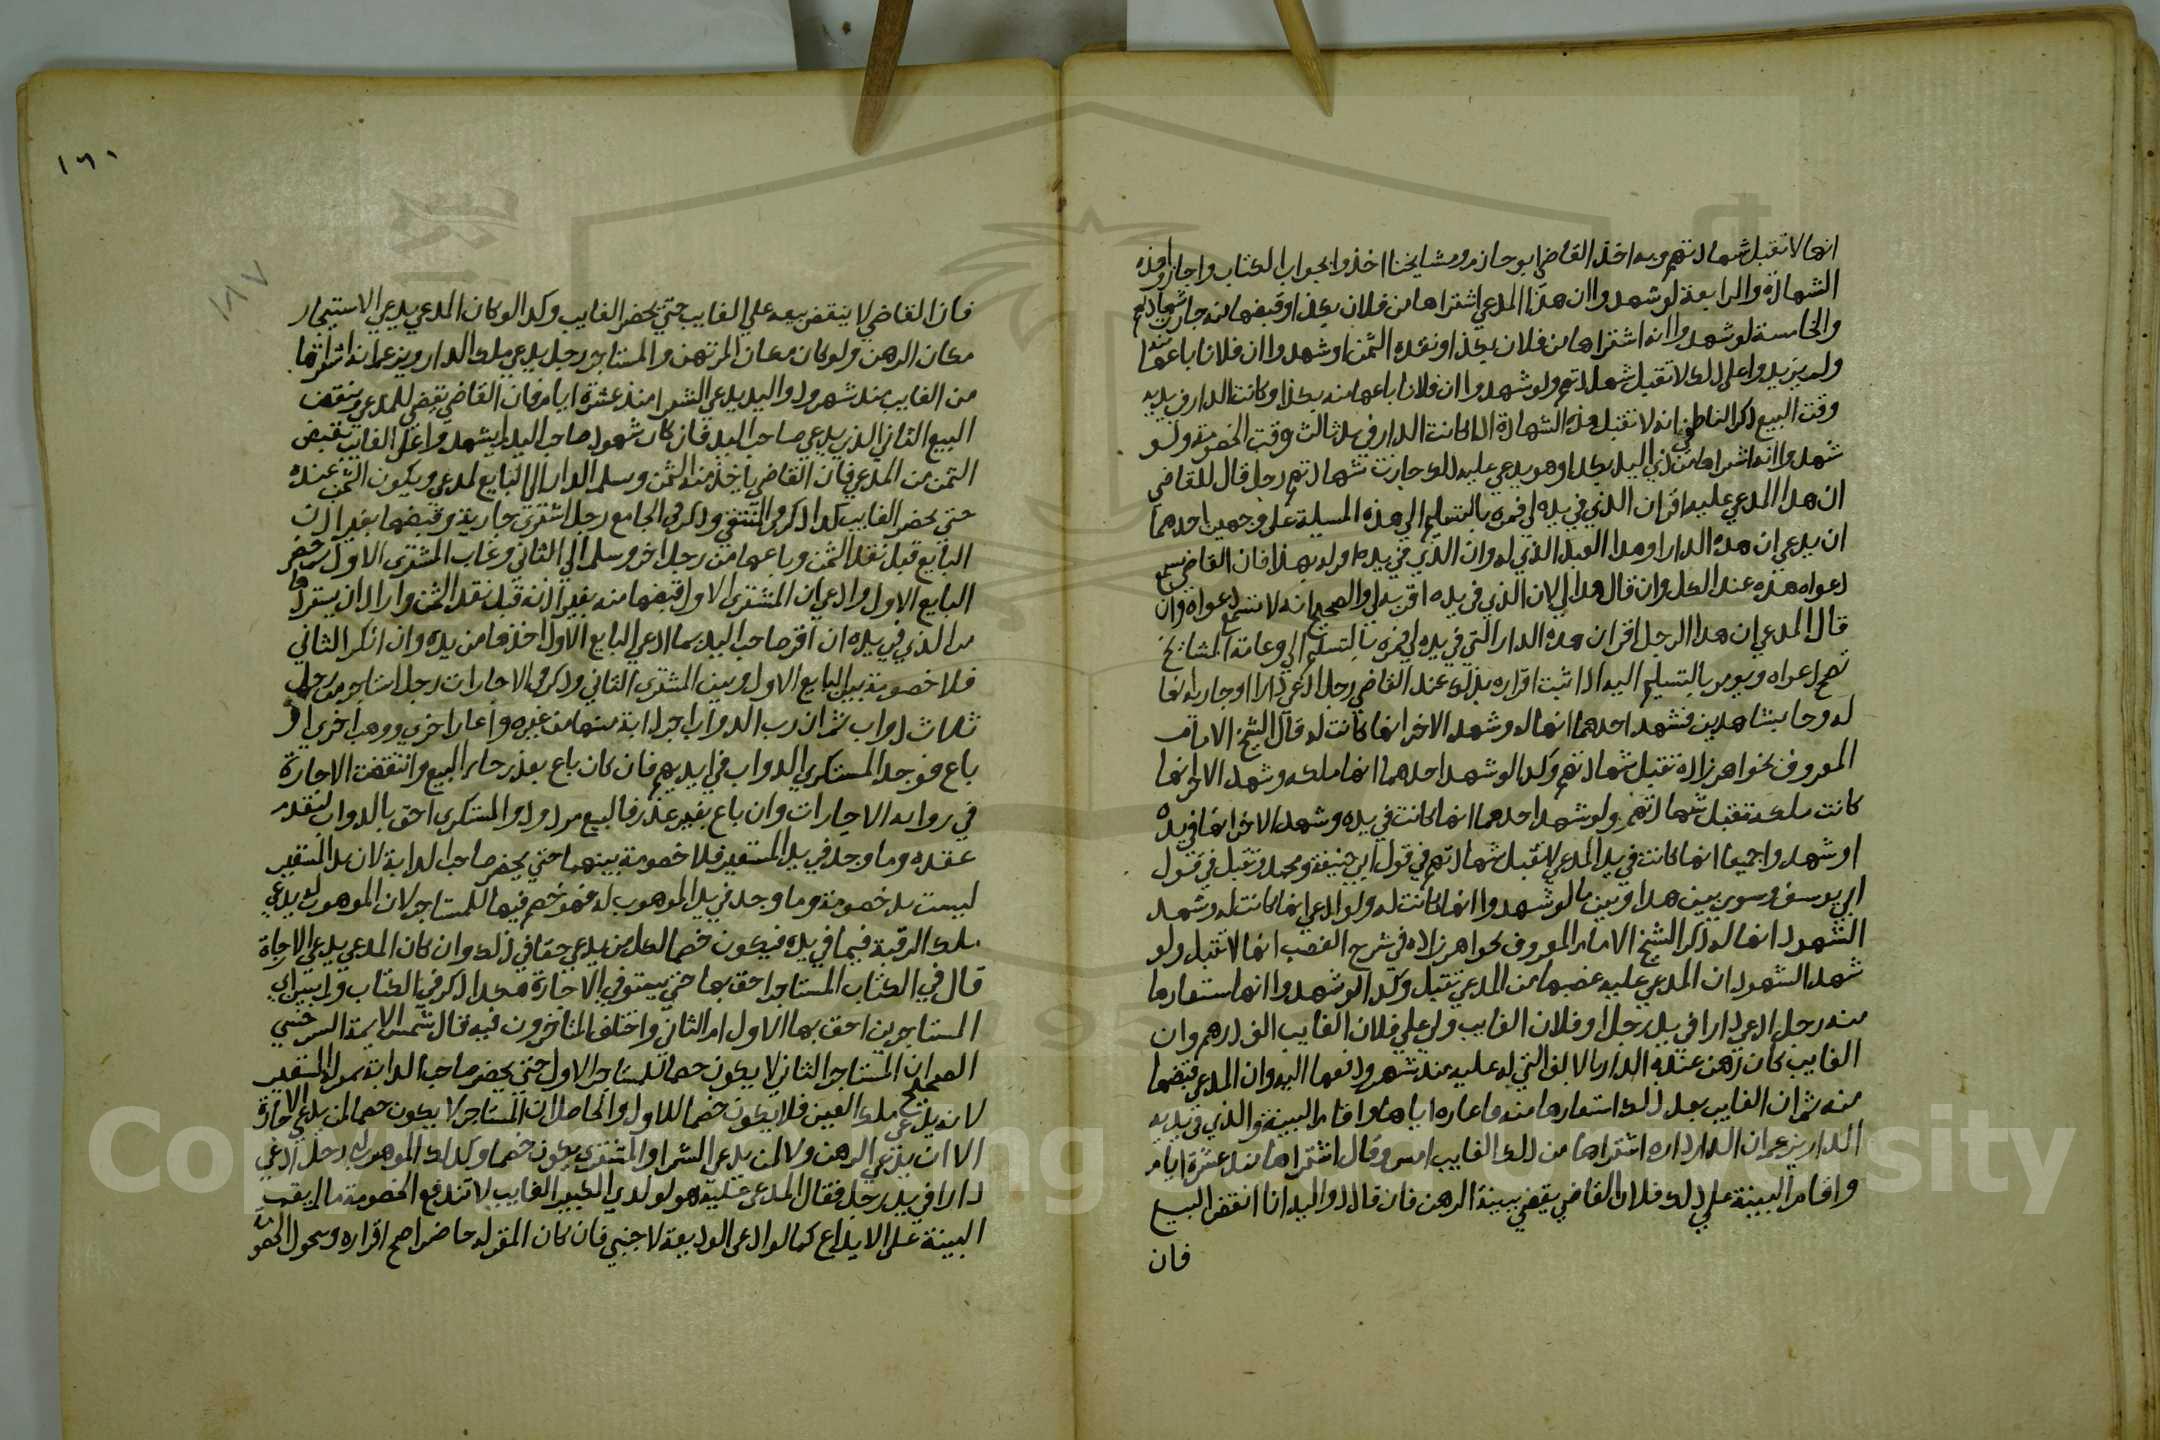 انها لا تقبل شهادتهم وبه اخذ القاضي ابو حازم ومشايخنا اخذوا بجواب الكتاب واجازوا هذه
الشهادة والرابعة لو شهدوا ان هذا المدعي اشتراها من فلان بكذا وقبضها منه جازت شهادتهم
والخامسة لو شهدوا انه اشتراها من فلان بكذا ونقده الثمن او شهدوا ان فلانا باعها منه
ولم يزيدوا على ذلك لا تقبل شهادتهم ولو شهدوا ان فلانا باعها منه بكذا وكانت الدار في يديه
وقت البيع ذكر الناطفي انه لا تقبل هذه الشهادة اذا كانت الدار في يد ثالث وقت الخصومة ولو
شهدوا انه اشتراها من ذي اليد بكذا وهو يدعي عليه ذلك جازت شهادتهم رجل قال للقاضي
ان هذا المدعي عليه اقر ان الذي في يده لي فمره بالتسليم الي هذه المسيلة على وجهين احدهما
ان يدعي ان هذه الدار او هذا العبد الذي له وان الذي في يده اقر له بهذا فان القاضي يسمع
دعواه هذه عند الكل وان قال هذا لي لان الذي في يده اقر به لي والصحيح انه لا تسمع دعواه وان
قال المدعي ان هذا الرجل اقر ان هذه الدار التي في يده لي فمره بالتسليم الي وعامة المشايخ
تصح دعواه ويومر بالتسليم اليه اذا ثبت اقراره بذلك عند القاضي رجل ادعي دارا او جارية انها
له وجا بشاهدين فشهد احدهما انها له وشهد الاخر انها كانت له قال الشيخ الامام
المعروف بخواهر زاده تقبل شهادتهم وكذا لو شهد احدهما انها ملكه وشهد الاخر انها
كانت ملكه تقبل شهادتهم ولو شهد احدهما انها كانت في يده وشهد الاخر انها في يده
او شهدوا جميعا انها كانت في يد المدعي لا تقبل شهادتهم في قول ابي حنيفة ومحمد وتقبل في قول
ابي يوسف وسوي بين هذا وبين ما لو شهدوا انها كانت له ولو ادعي انها كانت له وشهد
الشهود انها له ذكر الشيخ الامام المعروف بخواهر زاده في شرح الغصب انها لا تقبل ولو
شهد الشهود ان المدعي عليه غصبها من المدعي تقبل وكذا لو شهدوا انها استعارها
منه رجل ادعي دارا في يد رجل او فلان الغايب ولي علي فلان الغايب الف درهم وان
الغايب كان رهن عنده الدار بالالف التي له عليه منذ شهر ودفعها اليه وان المدعي قبضها
منه ثم ان الغايب بعد ذلك استعارها منه فاعاره اياها واقام البينة والذي في يديه
الدار يزعم ان الدار داره اشتراها من ذلك الغايب امس وقال اشتراها منذ عشرة ايام
واقام البينة علي ذلك فلان القاضي يقضي ببينة الرهن فان قال ذو اليد انا انقض البيع
فان
١٦٠
١٨٧
فان القاضي لا ينقض بيعه علي الغايب حتي يحضر الغايب وكذا لو كان المدعي يدعي الاستيجار
مكان الرهن ولو كان مكان المرتهن والمستاجر رجل يدعي ملك الدار ويزعم انه اشتراها
من الغايب منذ شهر وذو اليد يدعي الشرا منذ عشرة ايام فان القاضي يقضي للمدعي وينقض
البيع الثاني الذي يدعي صاحب اليد فان كان شهود صاحب اليد لم يشهدوا على الغايب بقبض
الثمن من المدعي فان القاضي ياخذ منه الثمن وسلم الدار الى البايع لمدعي ويكون الثمن عنده
حتي يحضر الغايب كذا ذكر في المنتقي وذكر في الجامع رجل اشتري جارية وقبضها بغير اذن
البايع قبل نقد الثمن وباعها من رجل اخر وسلم الي الثاني وغاب المشتري الاول وحضر
البايع الاول وادعي ان المشتري الاول قبضها منه بغير اذنه قبل نقد الثمن واراد ان يستردها
من الذي في يده ان اقر صاحب اليد بما ادعي البايع الاول اخذها من يده وان انكر الثاني
فلا خصومة بين البايع الاول وبين المشتري الثاني وذكر في الاجارات رجل استاجر من رجل
ثلاث دواب ثم ان رب الدواب اجر دابة منها من غيره واعار اخري ووهب اخري او
باع فوجد المستكري الدواب في ايديهم فان كان باع بعذر جاز البيع وانتقضت الاجارة
في رواية الاجارات وان باع بغير عذر فالبيع مردود والمستكري احق بالدواب لتقدم
عقده وما وجد في يد المستعير فلا خصومة بينهما حتي يحضر صاحب الدابة لان يد المستعير
ليست يد خصومة وما وجد في يد الموهوب له فهو خصم فيها للمستاجر لان الموهوب له يدعي
ملك الرقبة فيما في يده فيكون خصما لكل من يدعي حقا في ذلك وان كان المدعي يدعي الاجارة
قال في الكتاب المستاجر احق بها حتي يستوفي الاجارة هكذا ذكر في الكتاب ولم يبين اي
المستاجرين احق بها الاول ام الثاني واختلف المتاخرون فيه قال شمس الايمة السرخسي
الصحيح ان المستاجر الثاني لا يكون خصما للمستاجر الاول حتي يحضر صاحب الدابة بمنزلة المستعير
لانه يدعي ملك العين فلا يكون خصما للاول والحاصل ان المستاجر لا يكون خصما لمن يدعي الاجارة
الا ان يدعي الرهن ولا لمن يدعي الشرا والمشتري يكون خصما وكذلك الموهوب له رجل ادعي
دارا في يد رجل فقال المدعي عليه هو لولدي الكبير الغايب لا تندفع الخصومة ما لم يقم
البينة على الايداع كما لو ادعى الوديعة لاجنبي فان كان المقر له حاضرا صح اقراره وتحول الخصومة